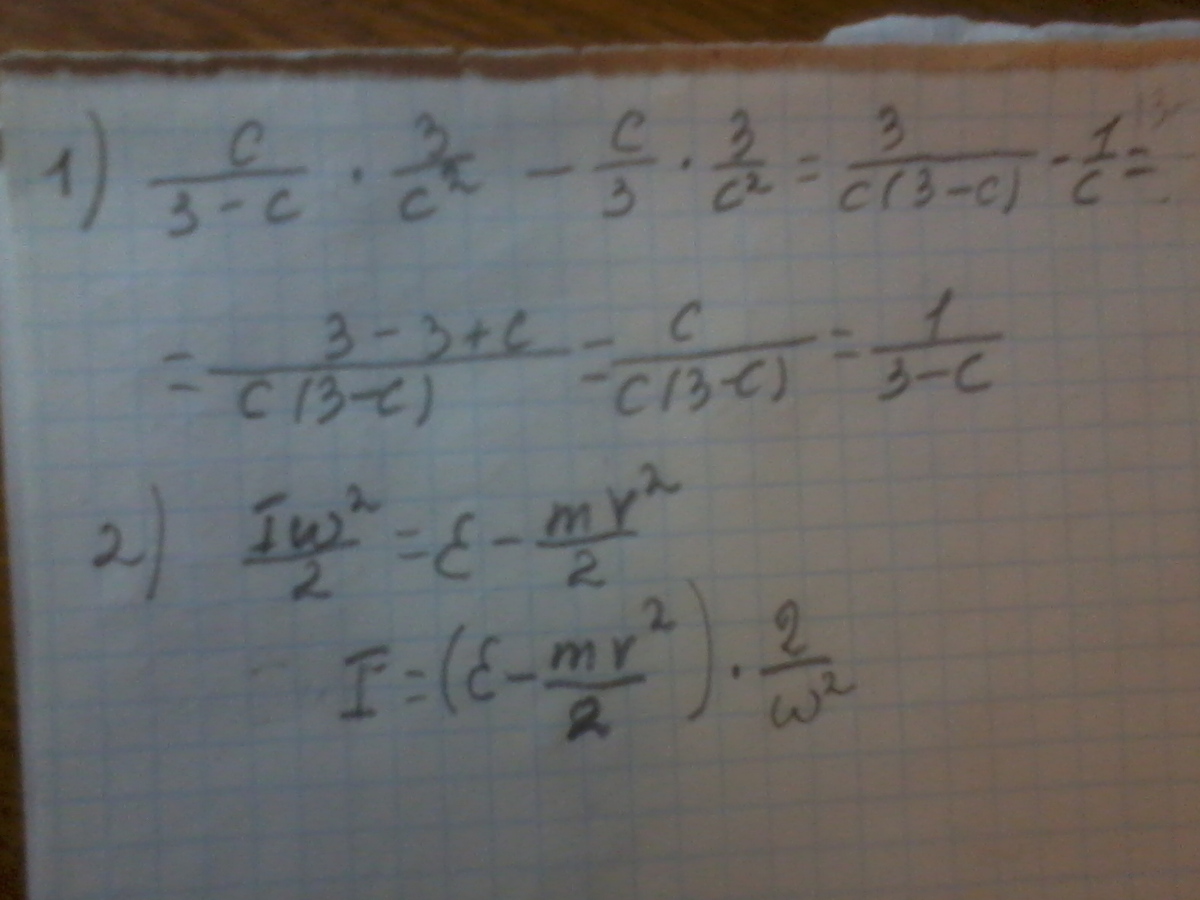 1) c/(3-c) · 3/c² - c/3 · 3/c² = 3/(c(3-c)) - 1/c =
= (3-3+c)/(c(3-c)) = c/(c(3-c)) = 1/(3-c)
2) Iω²/2 = Ɛ - mv²/2
I = (Ɛ - mv²/2) · 2/ω²